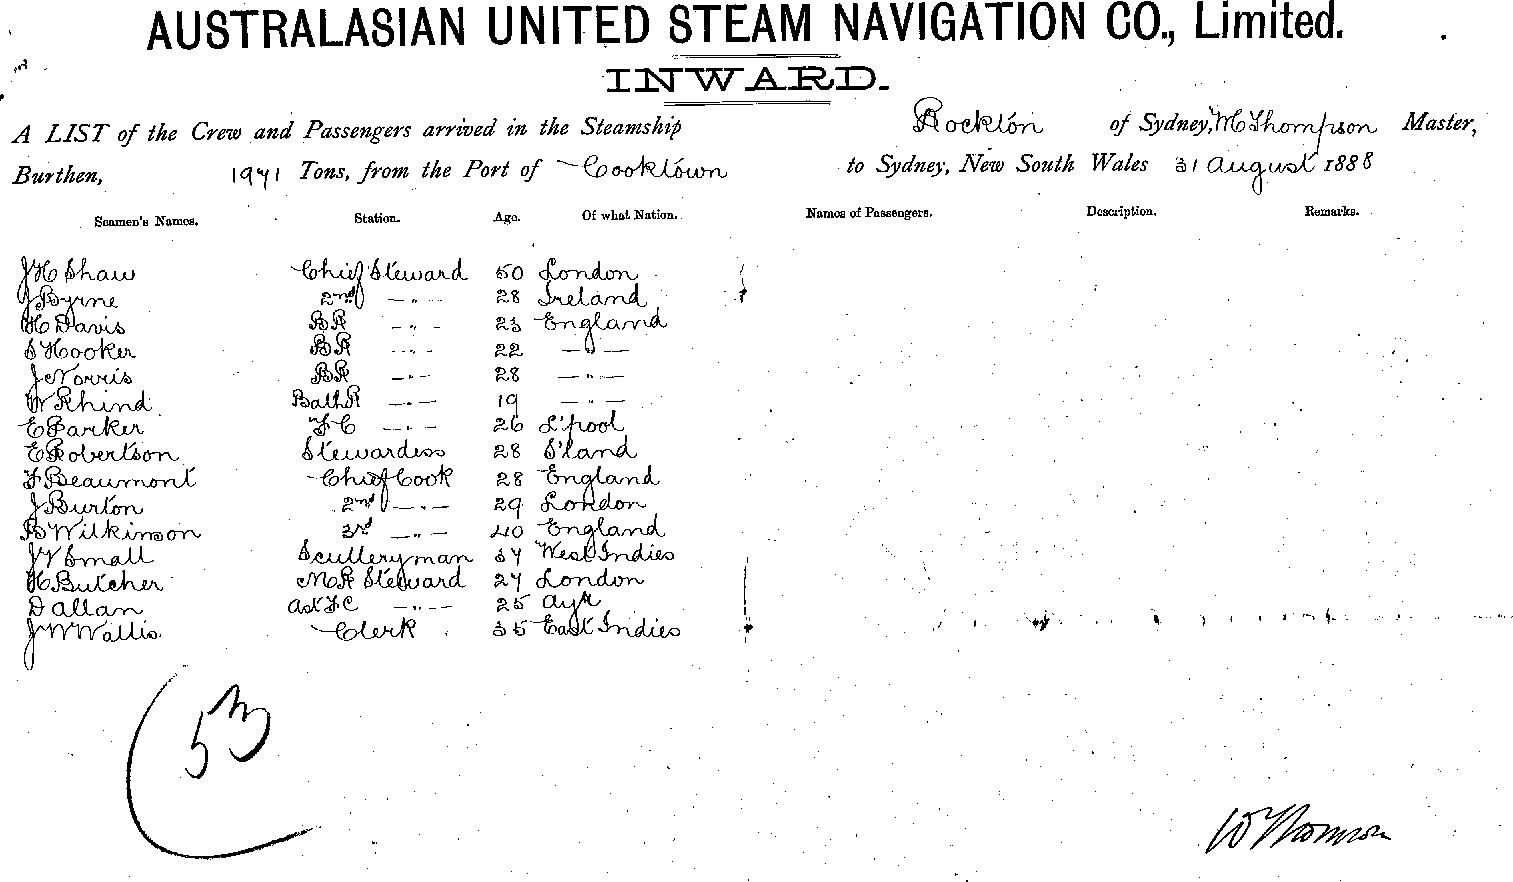 AUSTRALASIAN UNITED STEAM NAVIGATION CO., Limited.
INWARD.
A LIST of the Crew and Passengers arrived in the Steamship Rockton of Sydney, W C Thompson Master,
Burthen, 1971 Tons, from the Port of Cooktown to Sydney, New South Wales 31 August 1888
Seamen's Names. Station. Age. Of what Nation. Names of Passengers. Description. Remarks.
J H Shaw Chief Steward 50 London
J Byrne 2nd —"— 28 Ireland
H Davis BR —"— 23 England
S Hooker BR —"— 22 —"—
J Norris BR —"— 28 —"—
W Rhind Bath R —"— 19 —"—
E Parker F C —"— 26 L'pool
E Robertson Stewardess 28 S'land
F Beaumont Chief Cook 28 England
J Burton 2nd —"— 29 London
B Wilkinson 3rd —"— 40 England
J W Small Sculleryman 37 West Indies
H Butcher M R Steward 27 London
D Allan Ast F C —"— 25 Ayr
J W Wallis Clerk 35 East Indies
53